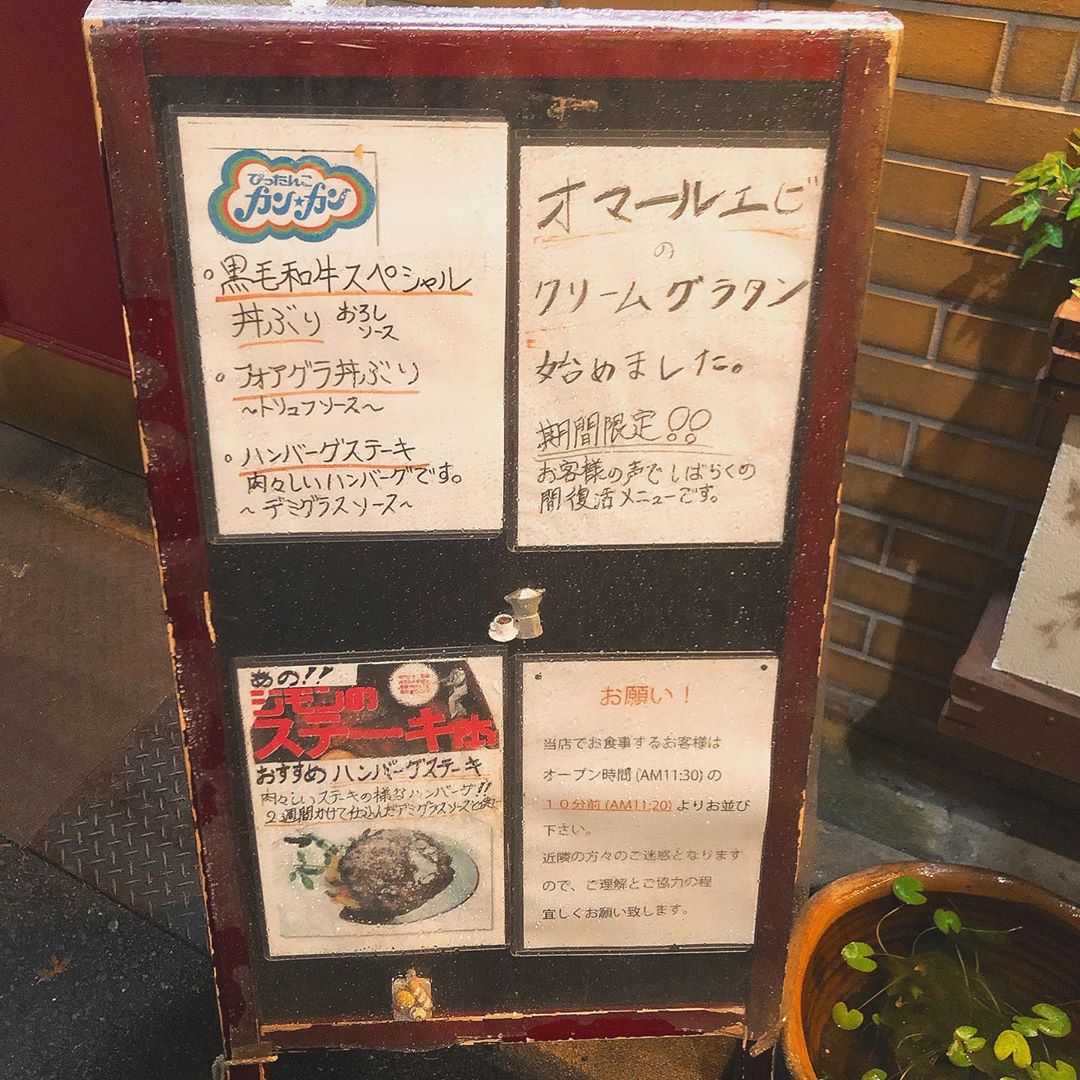 ぴったんこ
カン★カン
黒毛和牛スペシャル
丼ぶり おろし
ソース
フォアグラ丼ぶり
～トリュフソース～
ハンバーグステーキ
肉々しいハンバーグです。
～デミグラスソース～
オマールエビ
の
クリームグラタン
始めました。
期間限定!!
お客様の声でしばらくの
間復活メニューです。
あの!!
ジモンの
ステーキ
おすすめ ハンバーグステーキ
肉々しいステーキの様なハンバーグ!!
2週間かけて仕込んだデミグラスソースと
お願い！
当店でお食事するお客様は
オープン時間(AM11:30)の
１０分前(AM11:20)よりお並び
下さい。
近隣の方々のご迷惑となります
ので、ご理解とご協力の程
宜しくお願い致します。